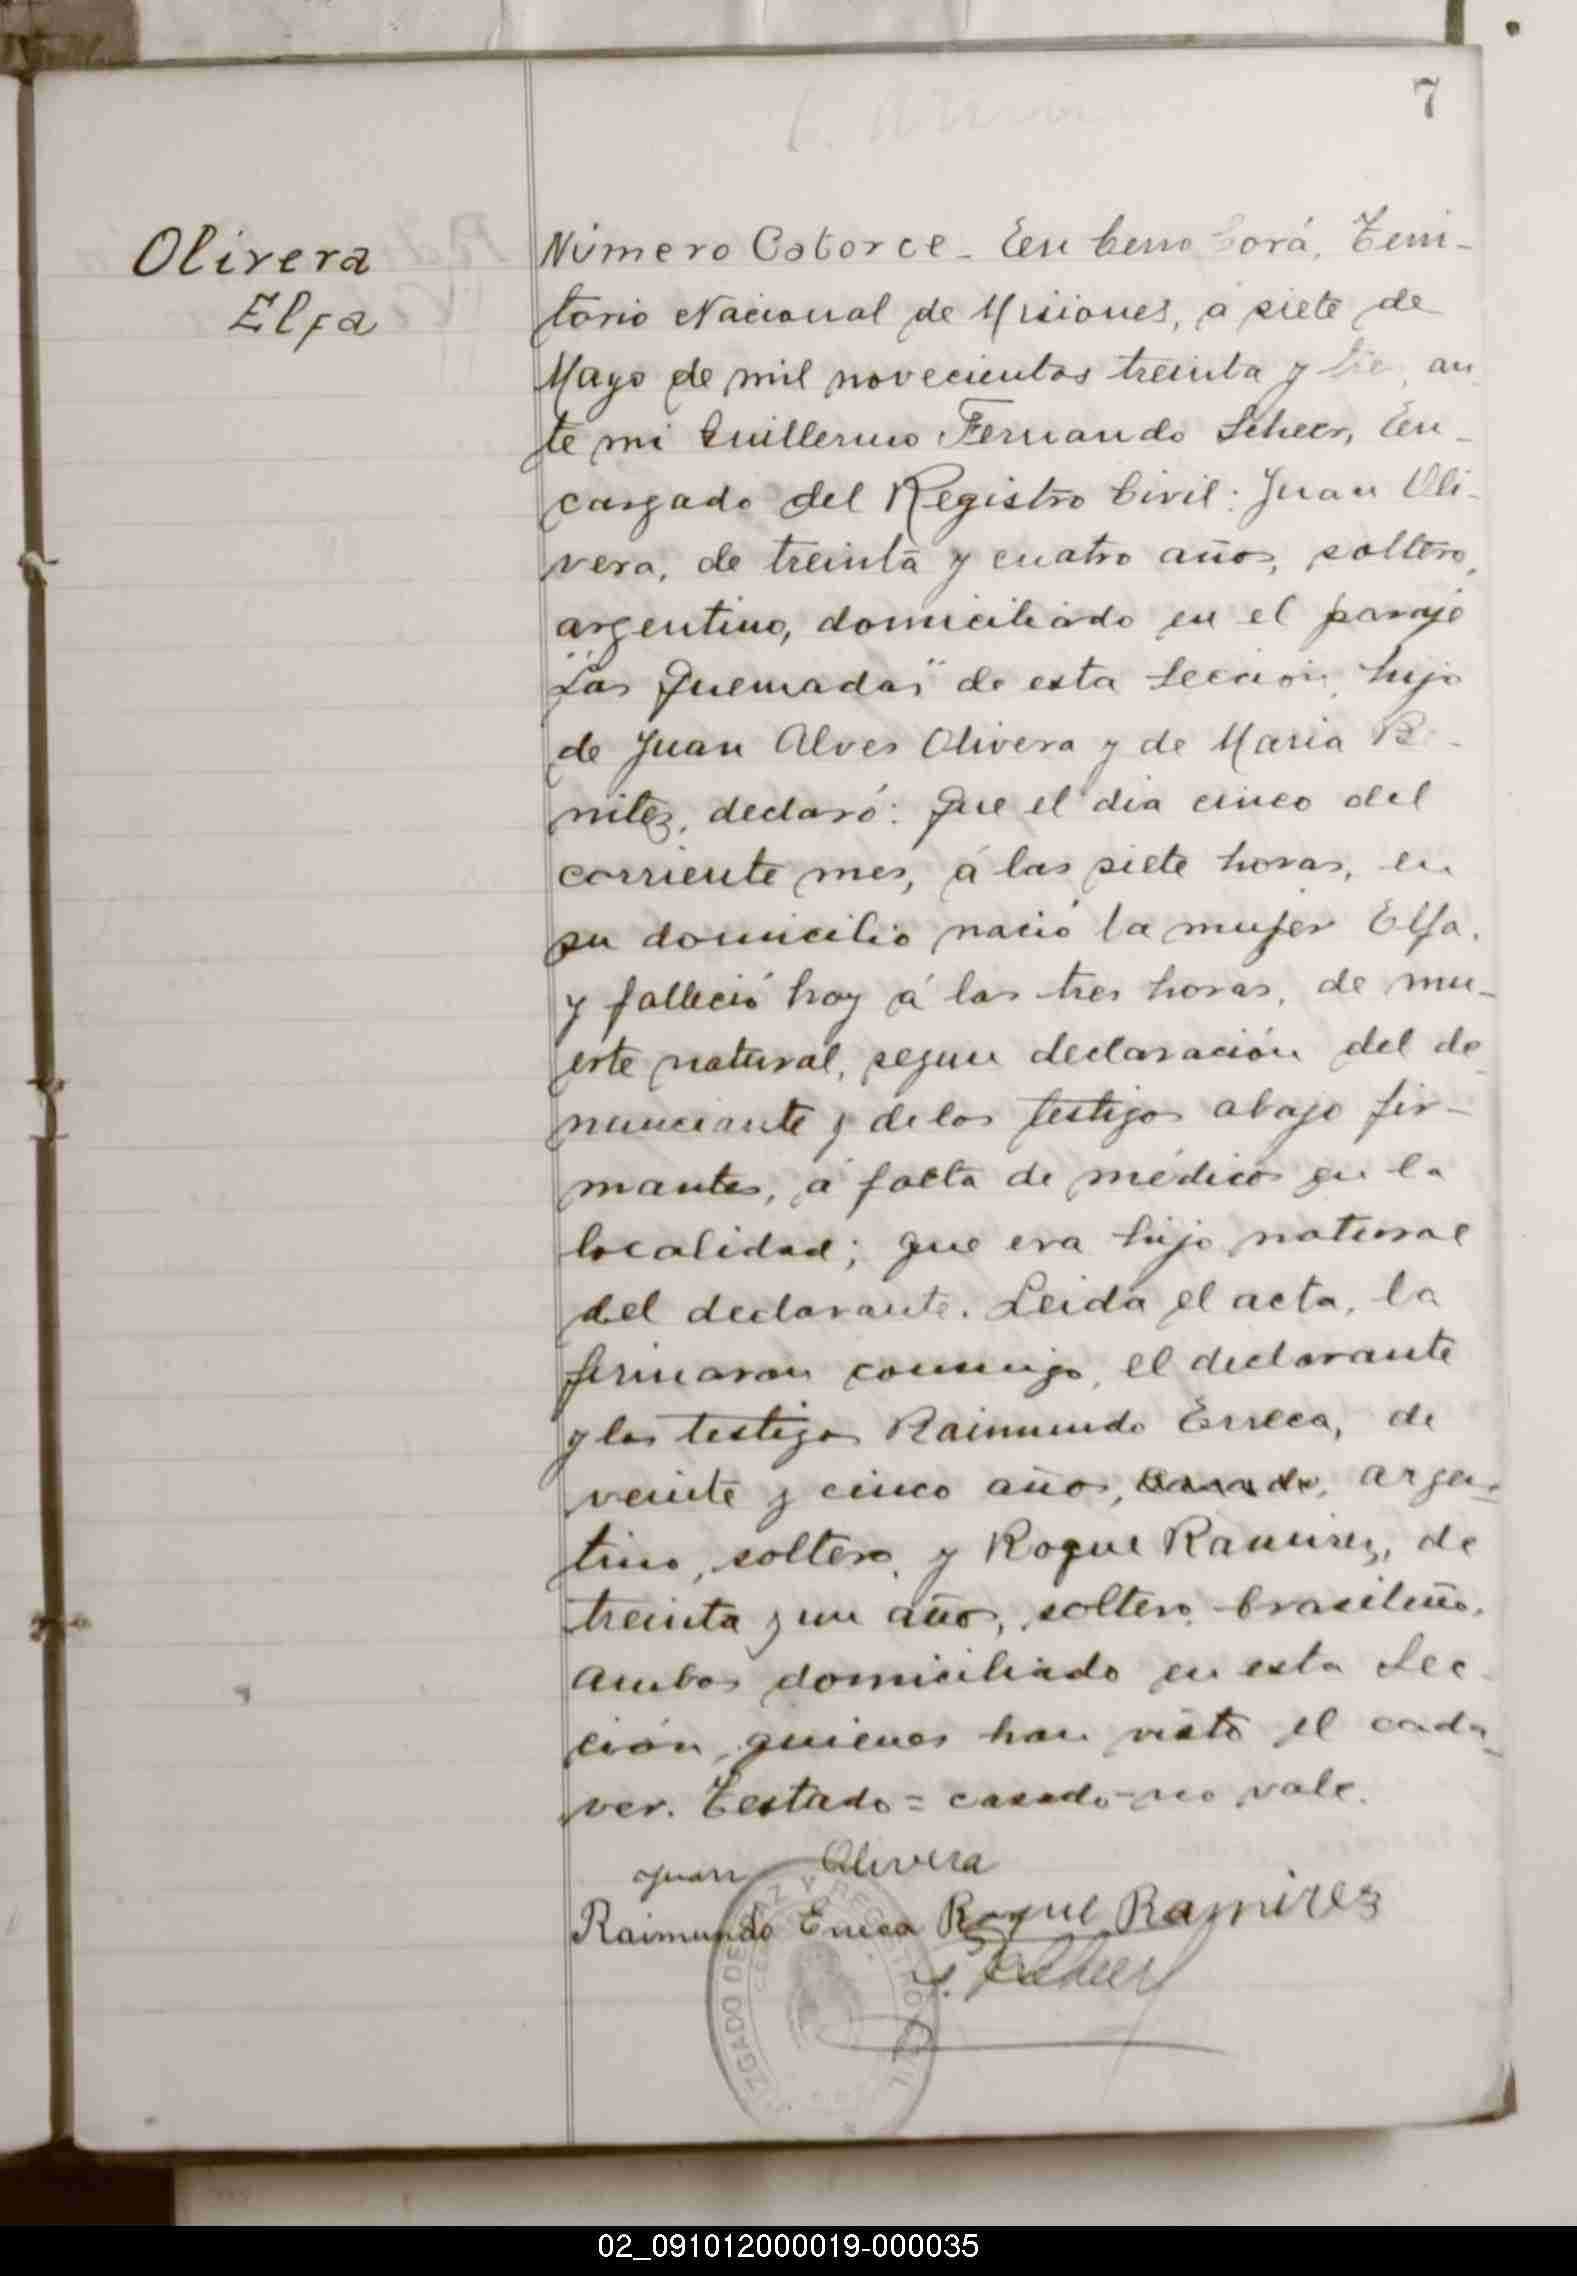 7
Olivera
Elfa
Número Catorce - En Cerro Corá, Terri-
torio Nacional de Misiones, á siete de
Mayo de mil novecientos treinta y an
te mi Guillermo Fernando Scheer, En-
cargado del Registro Civil: Juan Oli-
vera, de treinta y cuatro años, soltero,
argentino, domiciliado en el paraje
"Las Quemadas" de esta Sección, hijo
de Juan Alves Olivera y de Maria Be-
nitez, declaró: Que el dia cinco del
corriente mes, á las siete horas, en
su domicilio nació la mujer Elfa,
y falleció hoy á las tres horas, de mu-
erte natural, segun declaración del de
nunciante y de los testigos abajo fir-
mantes, á falta de médicos en la
localidad; que era hijo natural
del declarante. Leida el acta, la
firmaron conmigo, el declarante
y los testigos Raimundo Erreca, de
veinte y cinco años, casado, argen-
tino, soltero, y Roque Ramirez, de
treinta y un años, soltero, brasileño,
ambos domiciliado en esta Sec-
ción, quienes han visto el cada-
ver. Testado = casado - no vale.
Juan Olivera
Raimundo Erreca Roque Ramirez
JUZGADO DE PAZ Y REGISTRO CIVIL
02_091012000019-000035